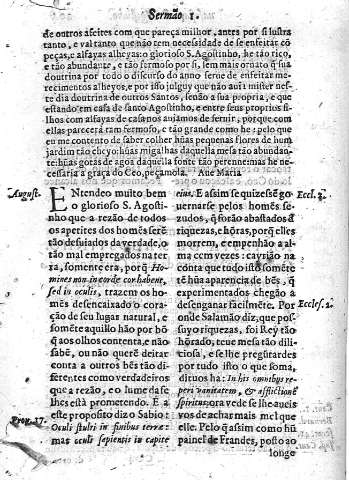 Sermão 1.
de outros afeites com que pareça milhor, antes por si lustra
tanto, e val tanto que não tem necesidade de se enfeitar cõ
peças, e alfayas alheyas: o glorioso S. Agostinho, he tão rico,
e tão abundante, e tão fermoso por si, sem mais ornato q̃ sua
doutrina por todo o discurso do anno serue de enfeitar me-
recimentos alheyos, e por isso julguy que não aui a mister nes-
te dia doutrina de outros Santos, senão a sua propria, e que
estando em casa de santo Agostinho, e entre seus proprios fi-
lhos com alfayas de casa nos auiamos de seruir, porque com
ellas parecerá tam fermoso, e tão grande como he: pelo que
eu me contento de saber colher hũas pequenas flores de hum
jardim tão rico, hũas migalhas daquella mesa tão abundan-
te: hũas gotas de agoa daquella fonte tão perenne: mas he ne-
cessaria a graça do Ceo, peçamola. Aue Maria
August.
ENtendeo muito bem
o glorioso S. Agosti-
nho que a rezão de todos
os apetites dos homẽs serẽ
tão desuiados da verdade, o
tão mal empregados na ter-
ra, somente era, porq̃ Ho-
mines non in corde cor habent,
sed in oculis, trazem os ho-
mẽs desencaixado o cora-
ção de seu lugar natural, e
somẽte aquillo hão por bõ
q̃ aos olhos contenta, e não
sabẽ, ou não querẽ deitar
conta a outros bẽs tão di-
ferentes como verdadeiros
que a rezão, e o lume da fe
lhes està prometendo. E a
este proposito diz o Sabio:
Prou. 17.
Oculi stulti in finibus terræ:
mas oculi sapientis in capite
eius. E assim se quizessẽ go-
uernarse pelos homẽs se-
zudos, q̃ forão abastados d̃
riquezas, e hõras, porq̃ elles
morrem, e empenhão a al-
ma cem vezes: cayrião na
conta que tudo isto somẽte
tẽ hũa aparencia de bẽs, q̃
experimentados chegão a
desenganar facilmẽte. Por
onde Salamão diz, que pos-
suyo riquezas, foi Rey tão
hõrado, teue mesa tão dili-
ciosa, e se lhe pregũtardes
por tudo isto o que soma,
dituos ha: In his omnibus re-
peri vanitatem, & afflictionẽ
spiritus: ora vede se lhe aueis
vos de achar mais mel que
elle. Pelo q̃ assim como hũ
painel de Frandes, posto ao
longo
Eccl. 2.
Eccles. 2.